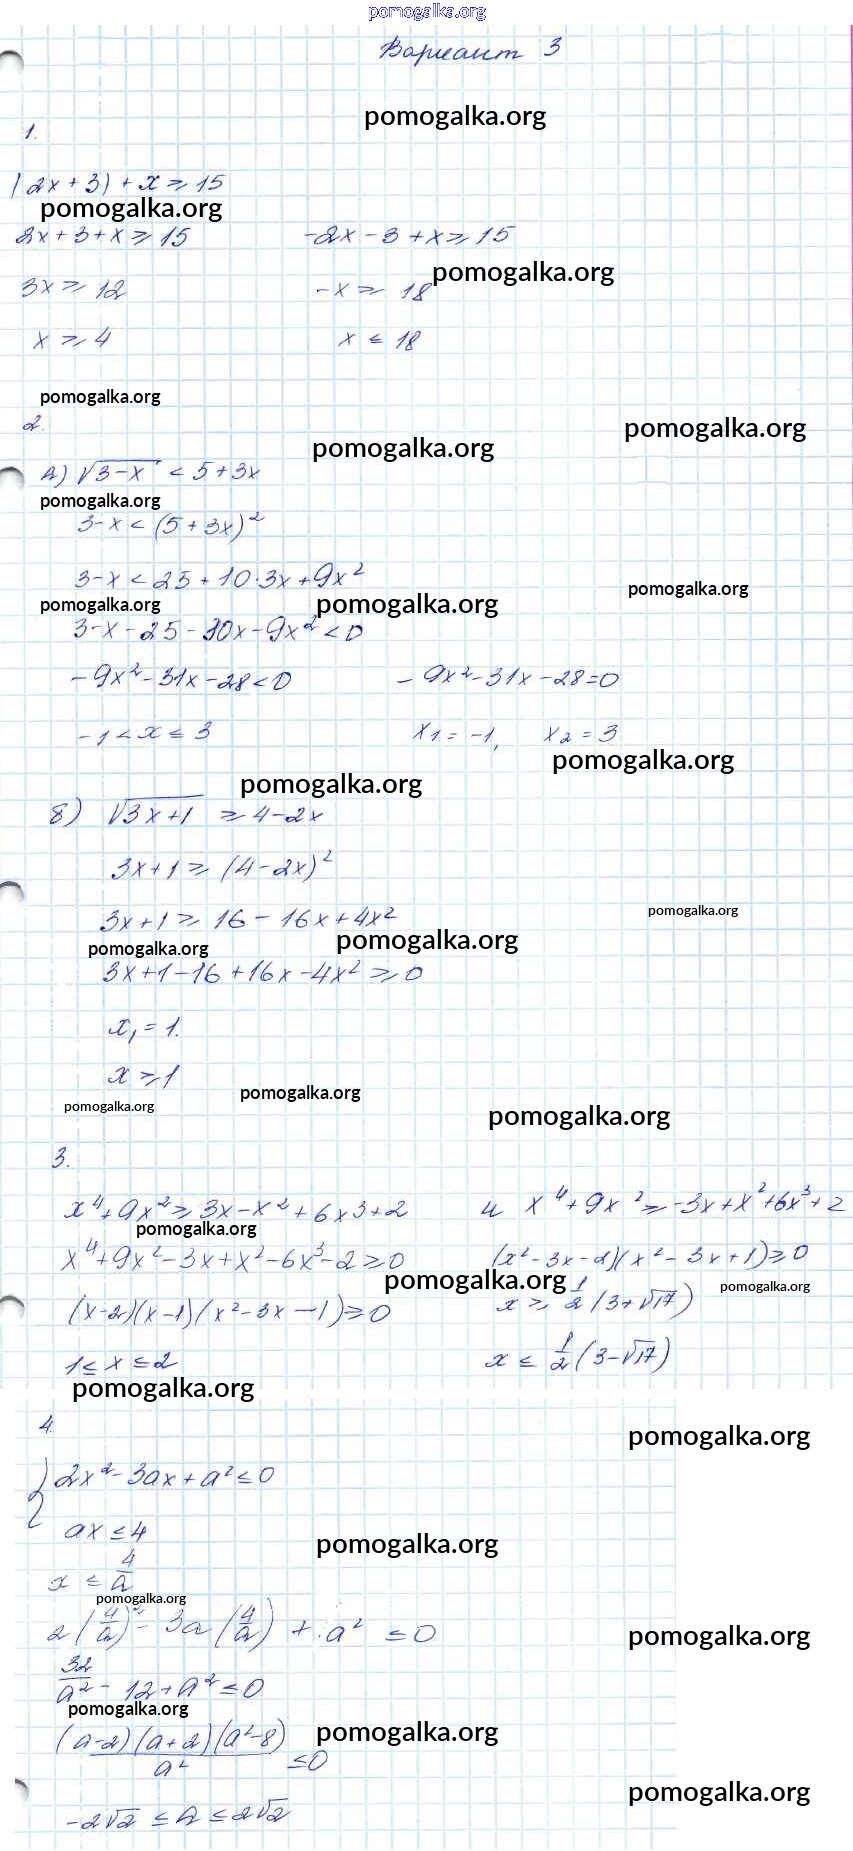 pomogalka.org
Вариант 3
pomogalka.org
1.
|2x+3|+x≥15
pomogalka.org
2x+3+x≥15 -2x-3+x≥15
pomogalka.org
3x≥12 -x≥18
x≥4 x≤18
pomogalka.org
2.
pomogalka.org pomogalka.org
А) √3-x < 5+3x
pomogalka.org
3-x<(5+3x)²
3-x<25+10·3x+9x²
pomogalka.org
pomogalka.org pomogalka.org
3-x-25-30x-9x²<0
-9x²-31x-28<0 -9x²-31x-28=0
-1<x≤3 x₁=-1, x₂=3
pomogalka.org
pomogalka.org
б) √3x+1 ≥4-2x
3x+1≥(4-2x)²
pomogalka.org
3x+1≥16-16x+4x²
pomogalka.org pomogalka.org
3x+1-16+16x-4x²≥0
x₁=1.
x≥1
pomogalka.org pomogalka.org
pomogalka.org
3.
x⁴+9x²≥3x-x²+6x³+2 и x⁴+9x²≥-3x+x²+6x³+2
pomogalka.org
x⁴+9x²-3x+x²-6x³-2≥0 (x²-3x-2)(x²-3x+1)≥0
pomogalka.org pomogalka.org
(x-2)(x-1)(x²-3x-1)≥0 x≥1/2(3+√17)
1≤x≤2 x≤1/2(3-√17)
pomogalka.org
4.
pomogalka.org
{2x²-3ax+a²≤0
ax≤4
pomogalka.org
x≤4/a
pomogalka.org
2(4/a)²-3a(4/a)+a²≤0
pomogalka.org
32/a²-12+a²≤0
pomogalka.org
(a-2)(a+2)(a²-8)/a²≤0
pomogalka.org
pomogalka.org
-2√2≤a≤2√2